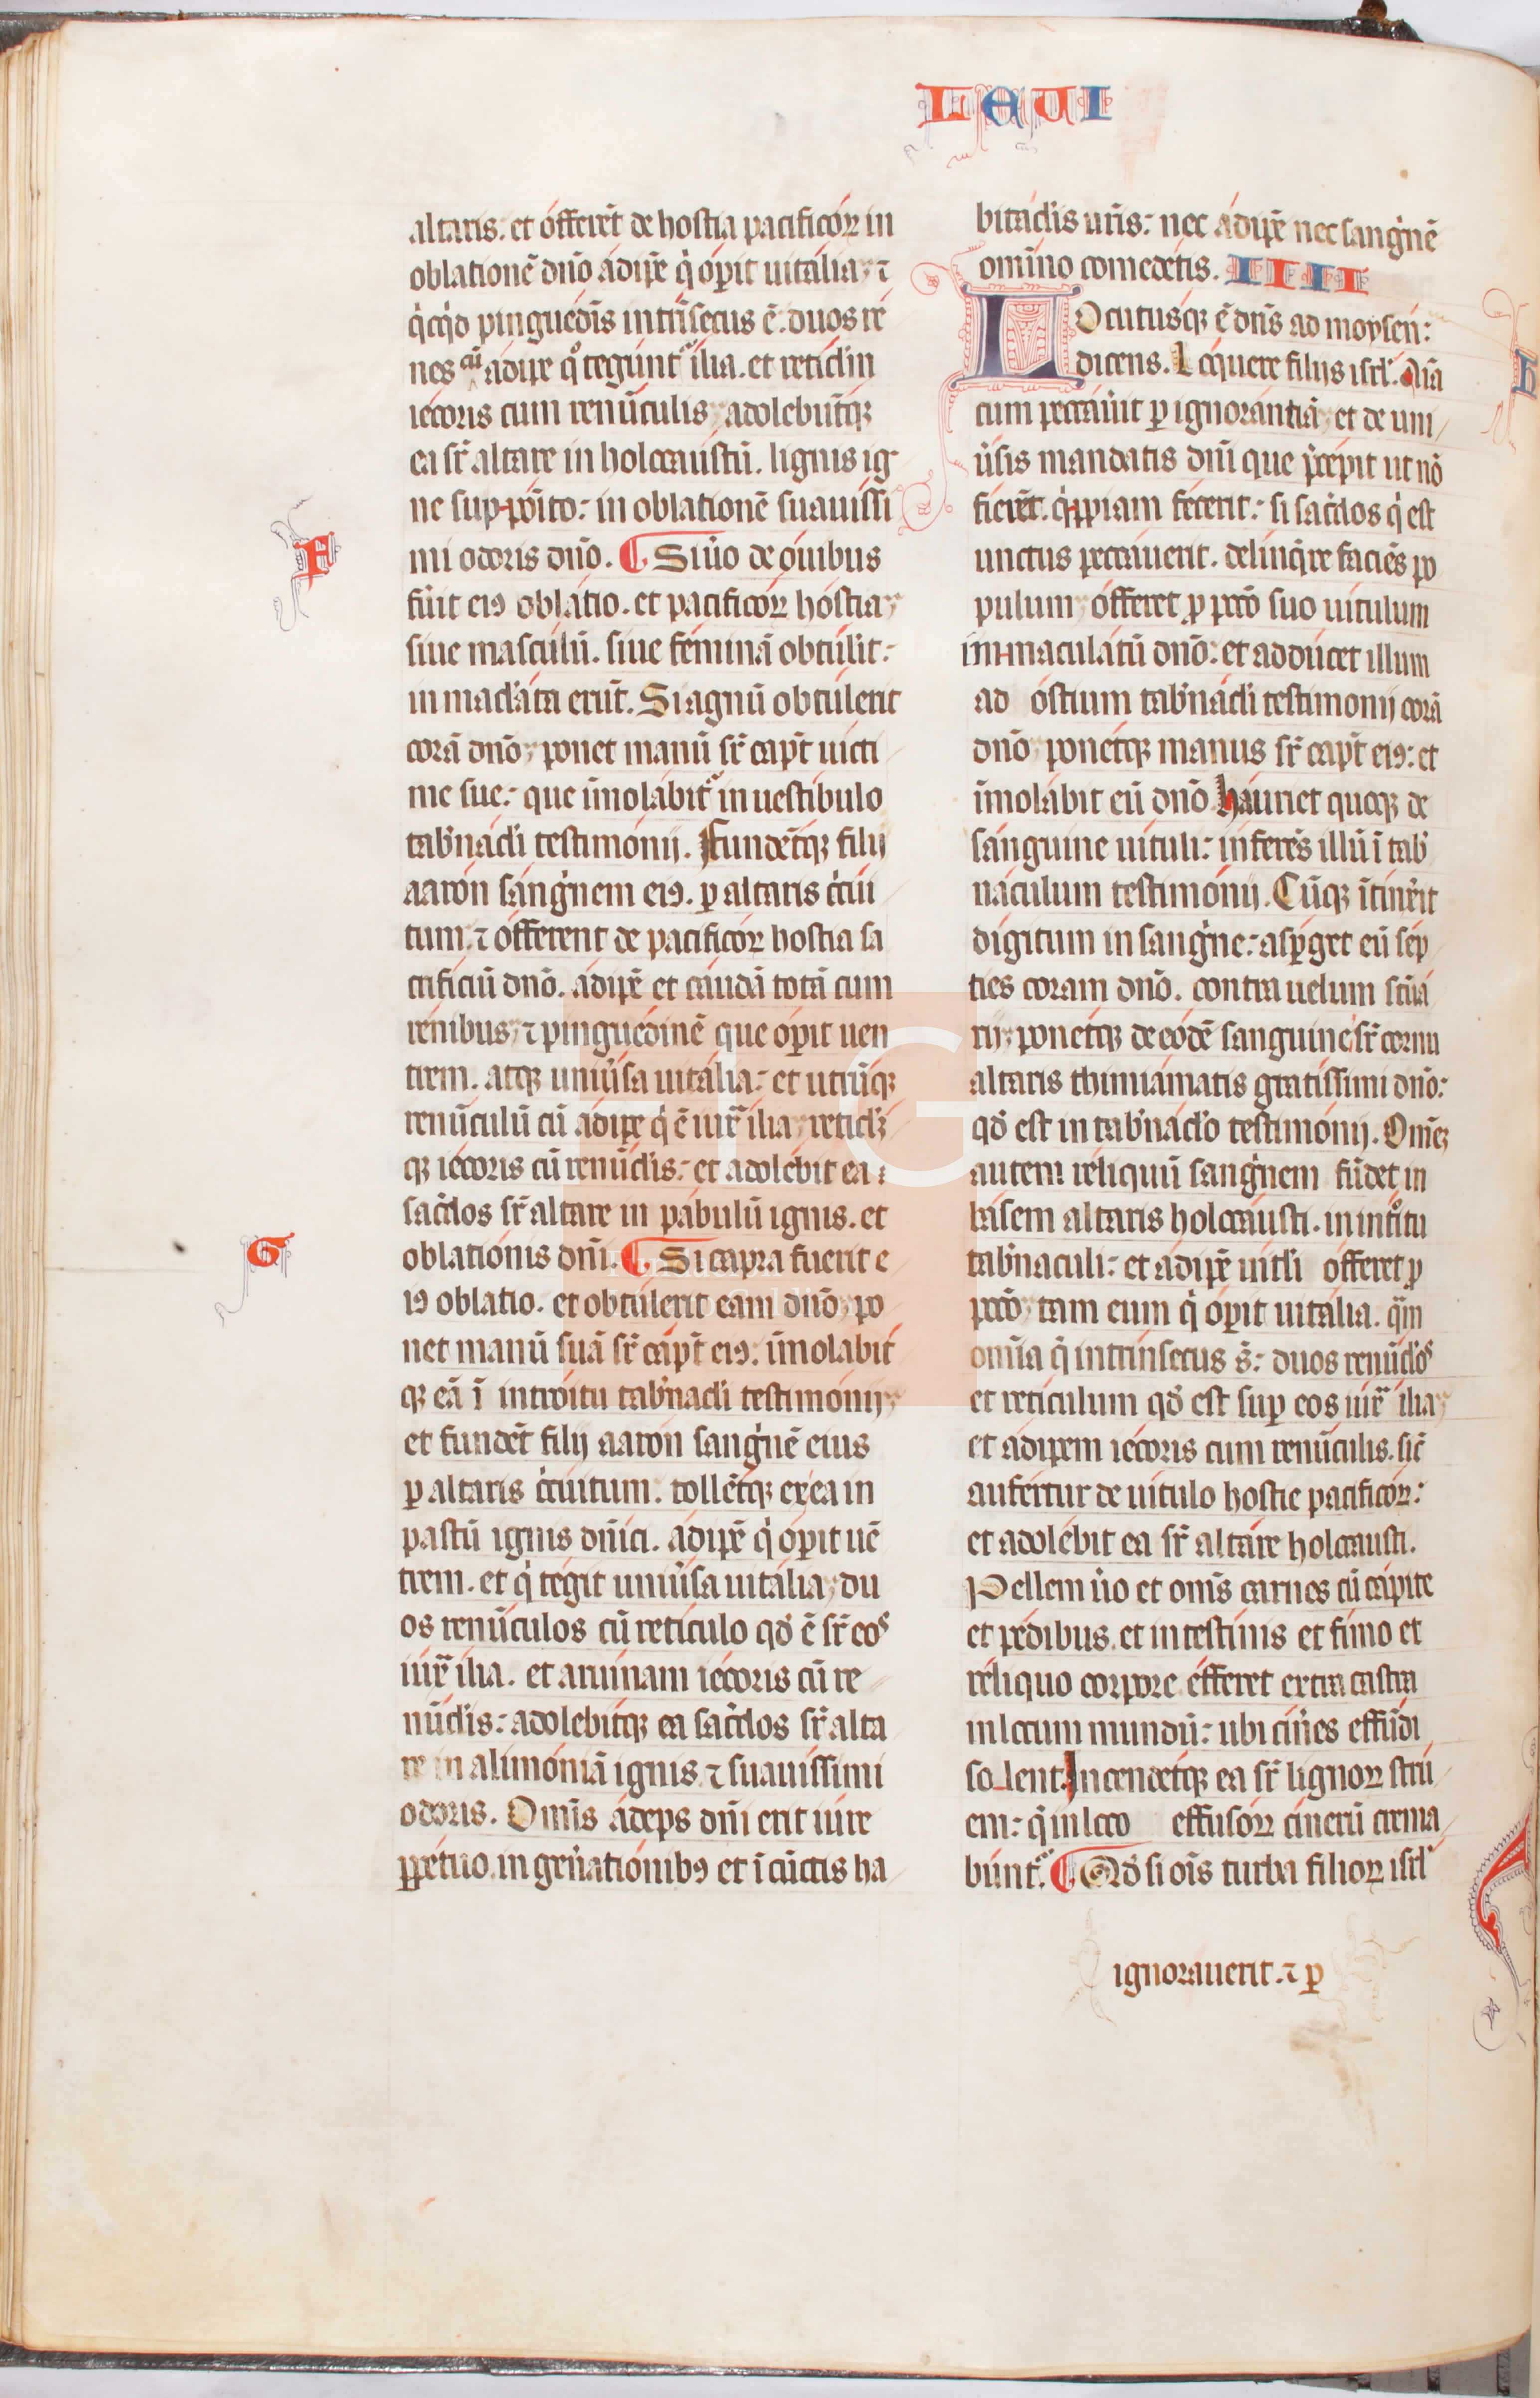 LEUI
altaris. et offerēt de hostia pacificoꝝ in
oblationē dn̄o adipē qͥ oꝑit uitalia ⁊
qͥcqͥd pinguedīs intrīsecus ē. duos re
nes cū adipe qͦ tegunt᷑ ilia. et reticl̄m
iecoris cum renūculis adolebūtqꝫ
ea sr̄ altare in holocaustū. lignis ig
ne suppoīto: in oblationē suauissi
mi odoris dn̄o. ¶ Si u̾o de ouibus
fu̾it eiꝰ oblatio. et pacificoꝝ hostia
siue masculū. siue feminā obtulit:
inmacl̄ata erūt. Si agnū obtulerit
corā dn̄o ponet manū sr̄ capt̄ uicti
me sue: que īmolabit᷑ in uestibulo
tab̾nacl̄i testimonij. Fundētqꝫ filij
aaron sangͥnem eiꝰ. ꝑ altaris cͥcui
tum. ⁊ offerent de pacificoꝝ hostia sa
crificiū dn̄o. adipē et caudā totā cum
renibus ⁊ pinguedinē que oꝑit uen
trem. atqꝫ uniu̾sa uitalia: et utrūqꝫ
renūculū cū adipe qͥ ē iux̄ ilia reticl̄ꝫ
qꝫ iecoris cū renūcl̄is: et adolebit ea
sac̾dos sr̄ altare in pabulū ignis. et
oblationis dn̄i. ¶ Si capra fuerit e
iꝰ oblatio. et obtulerit eam dn̄o po
net manū suā sr̄ capt̄ eiꝰ: īmolabit
qꝫ eā ī introitu tab̾nacl̄i testimonij
et fundēt filij aaron sangͥnē eius
ꝑ altaris cͥcuitum. tollētqꝫ ex ea in
pastū ignis dn̄ici. adipē qͥ oꝑit uē
trem. et qͥ tegit uniu̾sa uitalia du
os renūculos cū reticulo qd̄ ē sr̄ eos
iux̄ ilia. et aruinam iecoris cū re
nūcl̄is: adolebitqꝫ ea sac̾dos sr̄ alta
re in alimoniā ignis ⁊ suauissimi
odoris. Omīs adeps dn̄i erit iure
ꝑpetuo. in gen̾ationibꝰ et ī cūctis ha
bitacl̄is ur̄is: nec adipē nec sangͥnē
omīno comedetis. IIII
Locutusqꝫ ē dn̄s ad moysen:
dicens. Loquere filijs isrl̓. Aīa
cum peccau̾it ꝑ ignorantiā et de uni
u̾sis mandatis dn̄i que p̄cepit ut nō
fierēt. qͥppiam fecerit: si sac̾dos qͥ est
unctus peccauerit. delinqͥre faciēs po
pulum offeret ꝓ pccō suo uitulum
immaculatū dn̄o: et adducet illum
ad ostium tab̾nacl̄i testimonij corā
dn̄o ponetqꝫ manus sr̄ capt̄ eiꝰ: et
īmolabit eū dn̄o hauriet quoqꝫ de
sanguine uituli: inferēs illū ī tab̾
naculum testimonij. Cūqꝫ ītinx̾it
digitum in sangͥne: asꝑget eū sep
ties coram dn̄o. contra uelum sc̄ua
rij ponetqꝫ de eodē sanguine sr̄ cornu
altaris thimiamatis gratissimi dn̄o:
qd̄ est in tab̾nacl̄o testimonij. Omēꝫ
autem reliquū sangͥnem fūdet in
basem altaris holocausti. in intͦitu
tab̾naculi: et adipē uitl̄i offeret ꝓ
pccō tam eum qͥ oꝑit uitalia. qͣm
omīa qͥ intrinsecus s̄: duos renūcl̄os
et reticulum qd̄ est suꝑ eos iux̄ ilia
et adipem iecoris cum renūculis. sic̄
aufertur de uitulo hostie pacificoꝝ:
et adolebit ea sr̄ altare holocausti.
Pellem u̾o et omīs carnes cū capite
et pedibus et intestinis et fimo et
reliquo corpore efferet extra castra
in locum mundū: ubi cin̾es effūdi
solent Incendetqꝫ ea sr̄ lignoꝝ stru
em: qͥ in loco effusoꝝ cinerū crema
bunt᷑. ¶ Qd̄ si oīs turba filioꝝ isrl̓
ignorauerit. ⁊ ꝑ
F
G